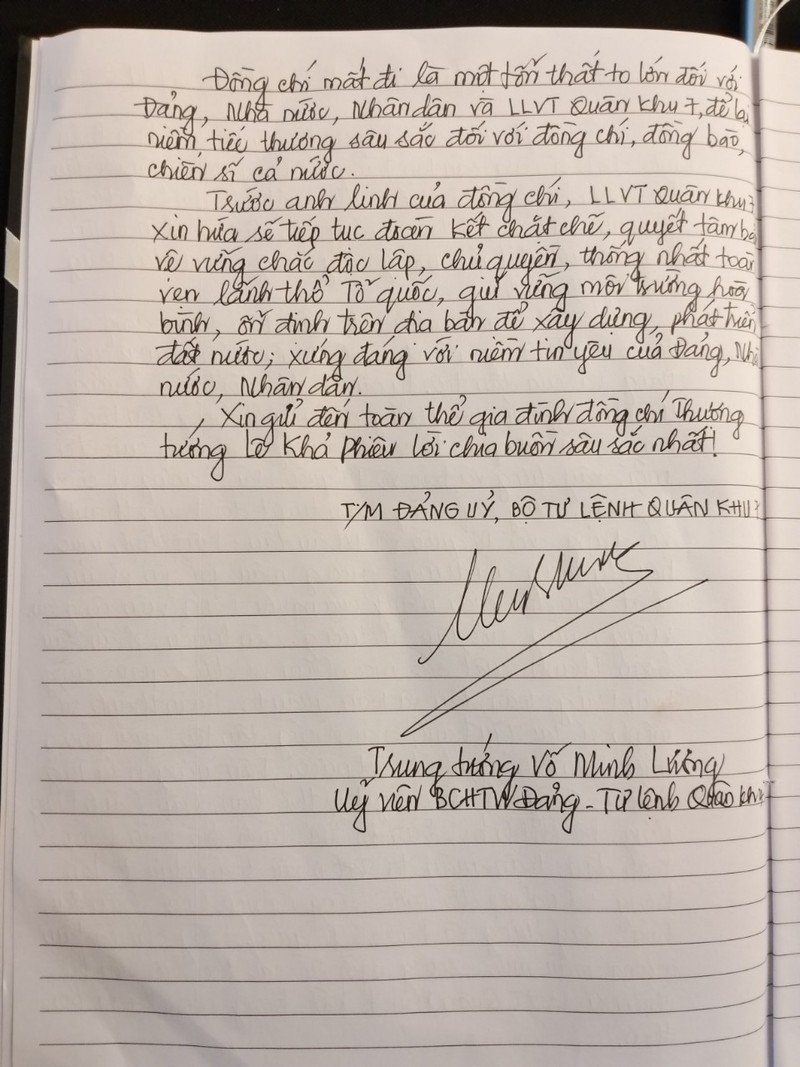 Đồng chí mất đi là một tổn thất to lớn đối với
Đảng, Nhà nước, Nhân dân và LLVT Quân khu 7, để lại
niềm tiếc thương sâu sắc đối với đồng chí, đồng bào,
chiến sĩ cả nước.
Trước anh linh của đồng chí, LLVT Quân khu 7
xin hứa sẽ tiếp tục đoàn kết chặt chẽ, quyết tâm bảo
vệ vững chắc độc lập, chủ quyền, thống nhất toàn
vẹn lãnh thổ Tổ quốc, giữ vững môi trường hòa
bình, ổn định trên địa bàn để xây dựng, phát triển
đất nước; xứng đáng với niềm tin yêu của Đảng, Nhà
nước, Nhân dân.
Xin gửi đến toàn thể gia đình đồng chí Thượng
tướng Lê Khả Phiêu lời chia buồn sâu sắc nhất!
T/M ĐẢNG UỶ, BỘ TƯ LỆNH QUÂN KHU 7
Trung tướng Võ Minh Lương
Uỷ viên BCHTW Đảng - Tư lệnh Quân khu